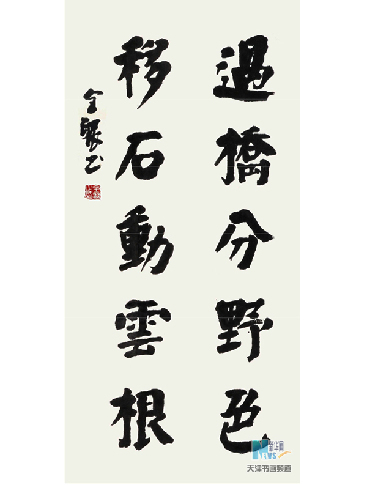 過橋分野色
移石動雲根
NEWS
天津书画频道